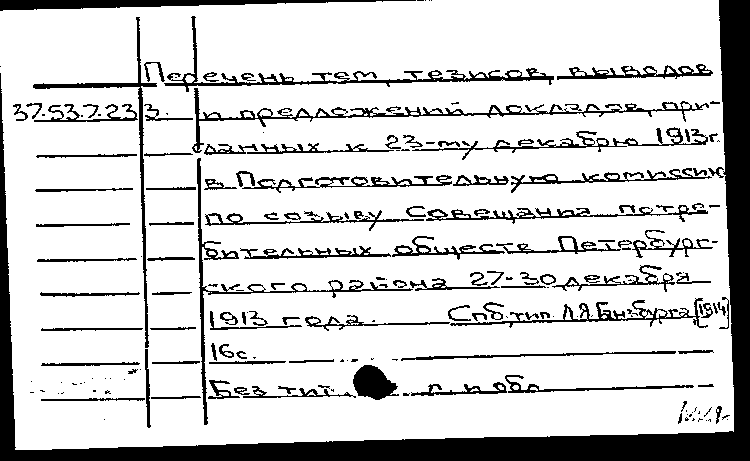 Перечень тем, тезисов, выводов
37.53.7.23 3. и предложений докладов, при-
данных к 23-му декабрю 1913г.
в Подготовительную комиссию
по созыву Совещания потре-
бительных обществ Петербург-
ского района 27-30 декабря
1913 года. Спб, тип. Л.Я. Гинзбурга, [1914]
16с.
Без тит. л. и обл.